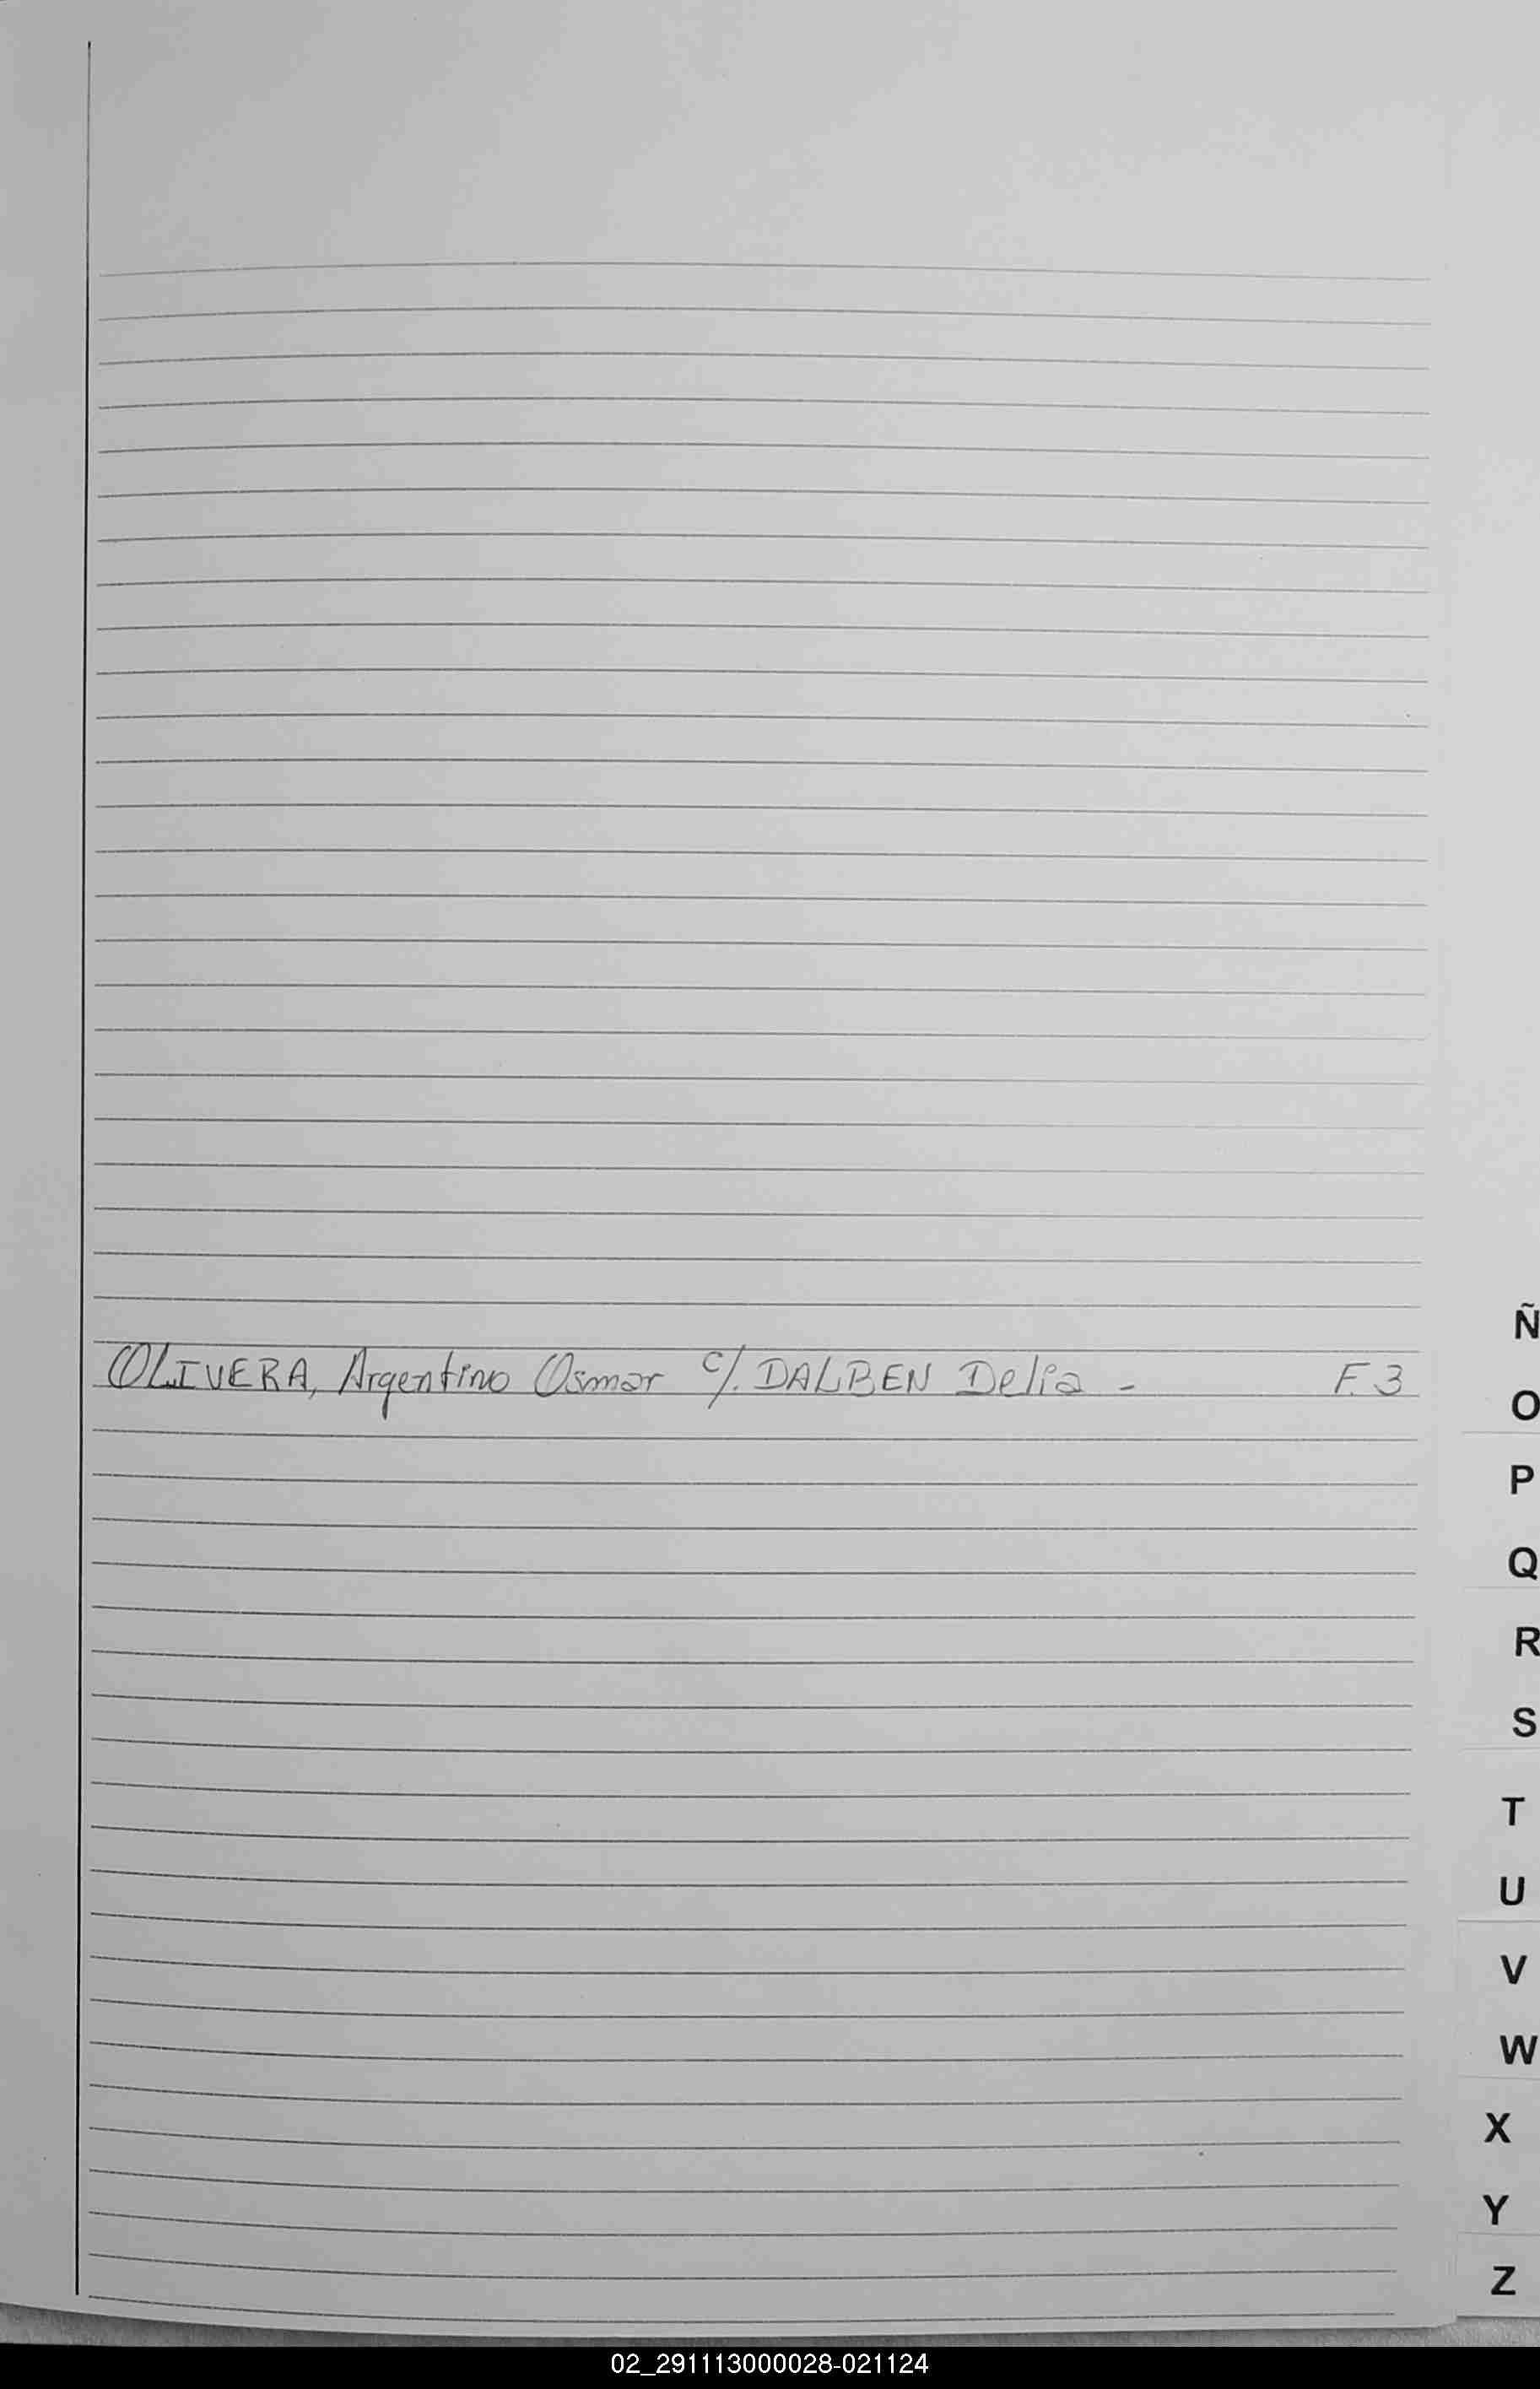 OLIVERA, Argentino Osmar c/. DALBEN Delia - F. 3
Ñ
O
P
Q
R
S
T
U
V
W
X
Y
Z
02_291113000028-021124